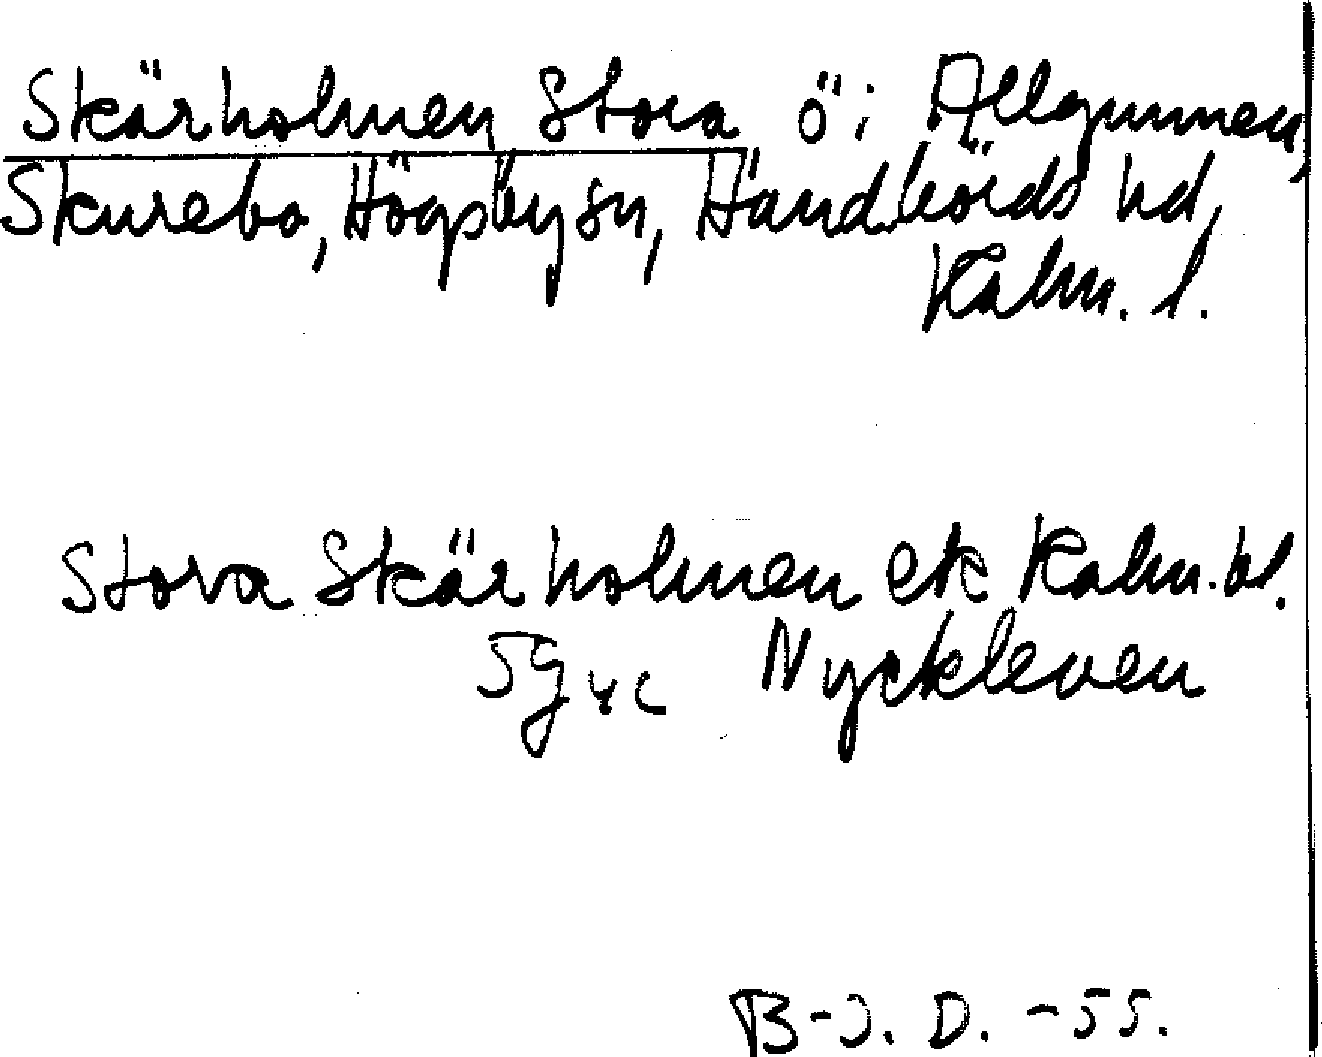 Skärholmen Stora ö i Allgunnen,
Skurebo, Högsby sn, Handbörds hd,
Kalm. l.
Stora Skärholmen ek Kalm. bl.
5g 4c Nyckleven
B-J. D. -55.